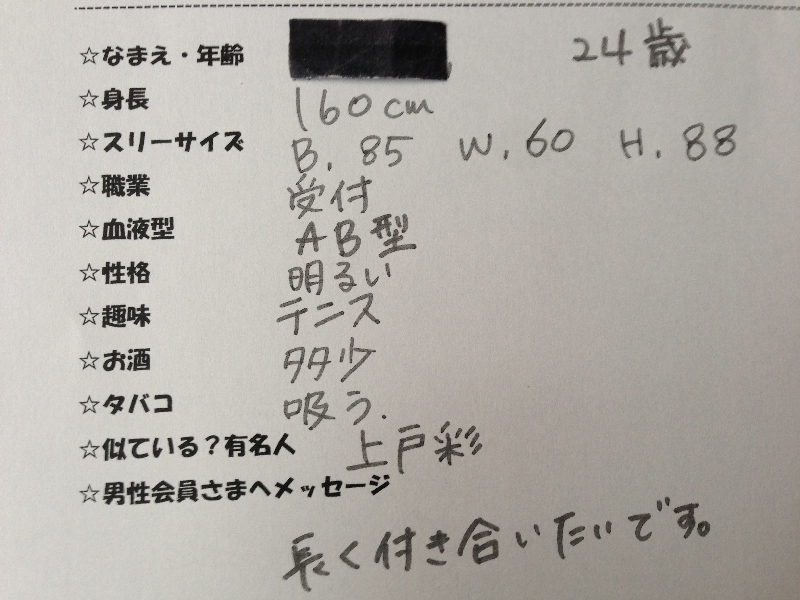 ☆なまえ・年齢 24歳
☆身長 160cm
☆スリーサイズ B. 85 W. 60 H. 88
☆職業 受付
☆血液型 AB型
☆性格 明るい
☆趣味 テニス
☆お酒 タタ少
☆タバコ 吸う.
☆似ている?有名人 上戸彩
☆男性会員さまへメッセージ
長く付き合いたいです。